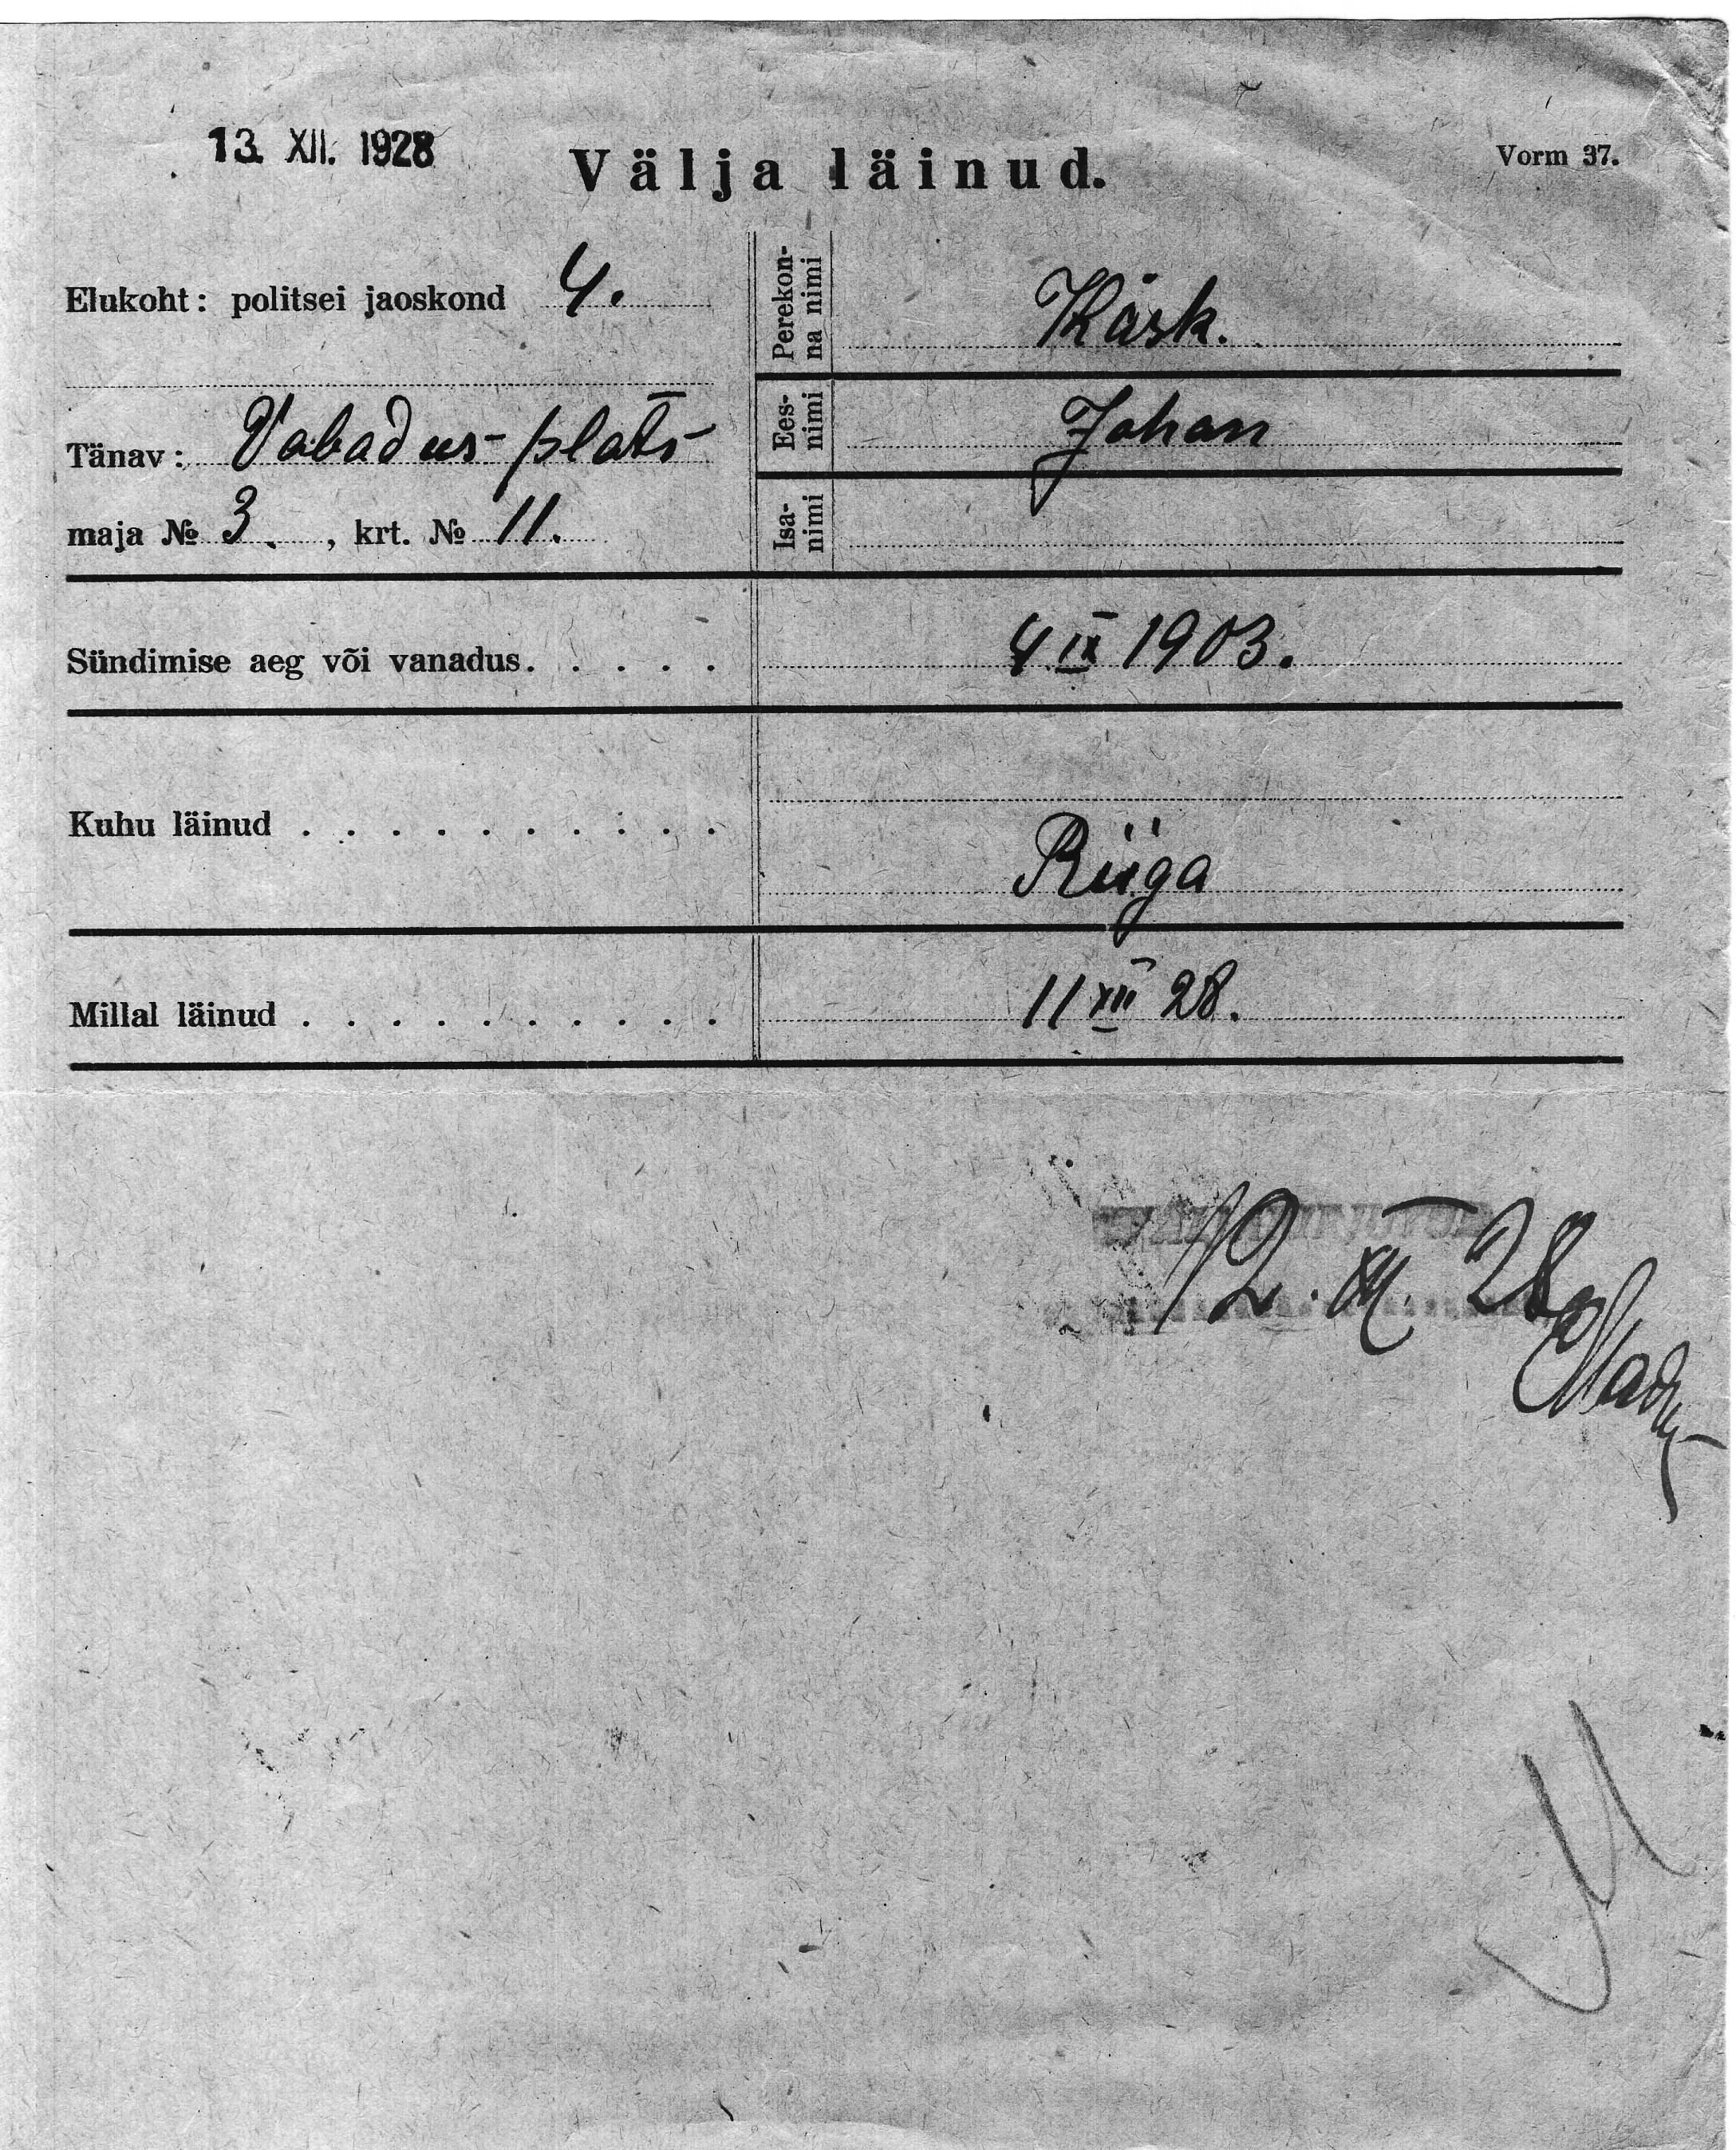 13. XII. 1928
Välja läinud.
Vorm 37.
Elukoht: politsei jaoskond 4.
Tänav: Vabadus-plats
maja № 3. , krt. № 11.
Perekon-
na nimi
Käsk.
Ees-
nimi
Johan
Isa-
nimi
Sündimise aeg või vanadus. . . . . 4 IX 1903.
Kuhu läinud . . . . . . . . . .
Riiga
Millal läinud . . . . . . . . . . 11 XII 28.
12. XII. 28